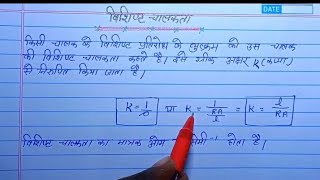 विशिष्ट चालकता
किसी चालक के विशिष्ट प्रतिरोध के व्युत्क्रम को उस चालक
की विशिष्ट चालकता कहते हैं। इसे ग्रीक अक्षर K(कप्पा)
से निरूपित किया जाता है।
K = 1/ρ या K = 1/(RA/l) = K = l/RA
विशिष्ट चालकता का मात्रक ओम⁻¹ सेमी⁻¹ होता है।